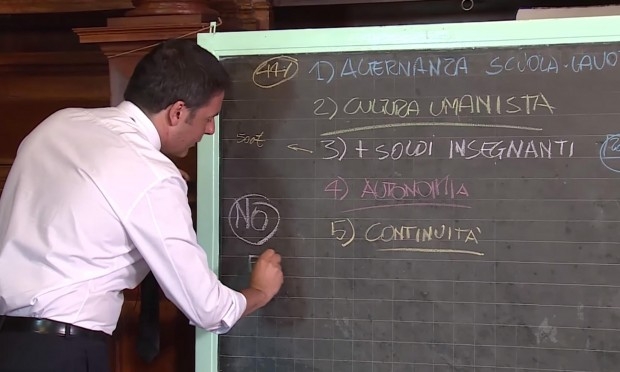 1) ALTERNANZA SCUOLA-LAVO
2) CULTURA UMANISTA
← 3) + SOLDI INSEGNANTI
4) AUTONOMIA
NO
5) CONTINUITÀ